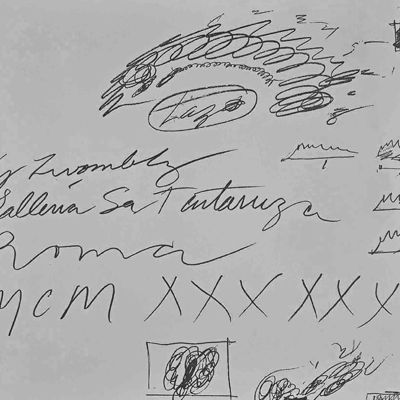 y Twombly
Galleria La Tartaruga
Roma
MCM XXX XXX